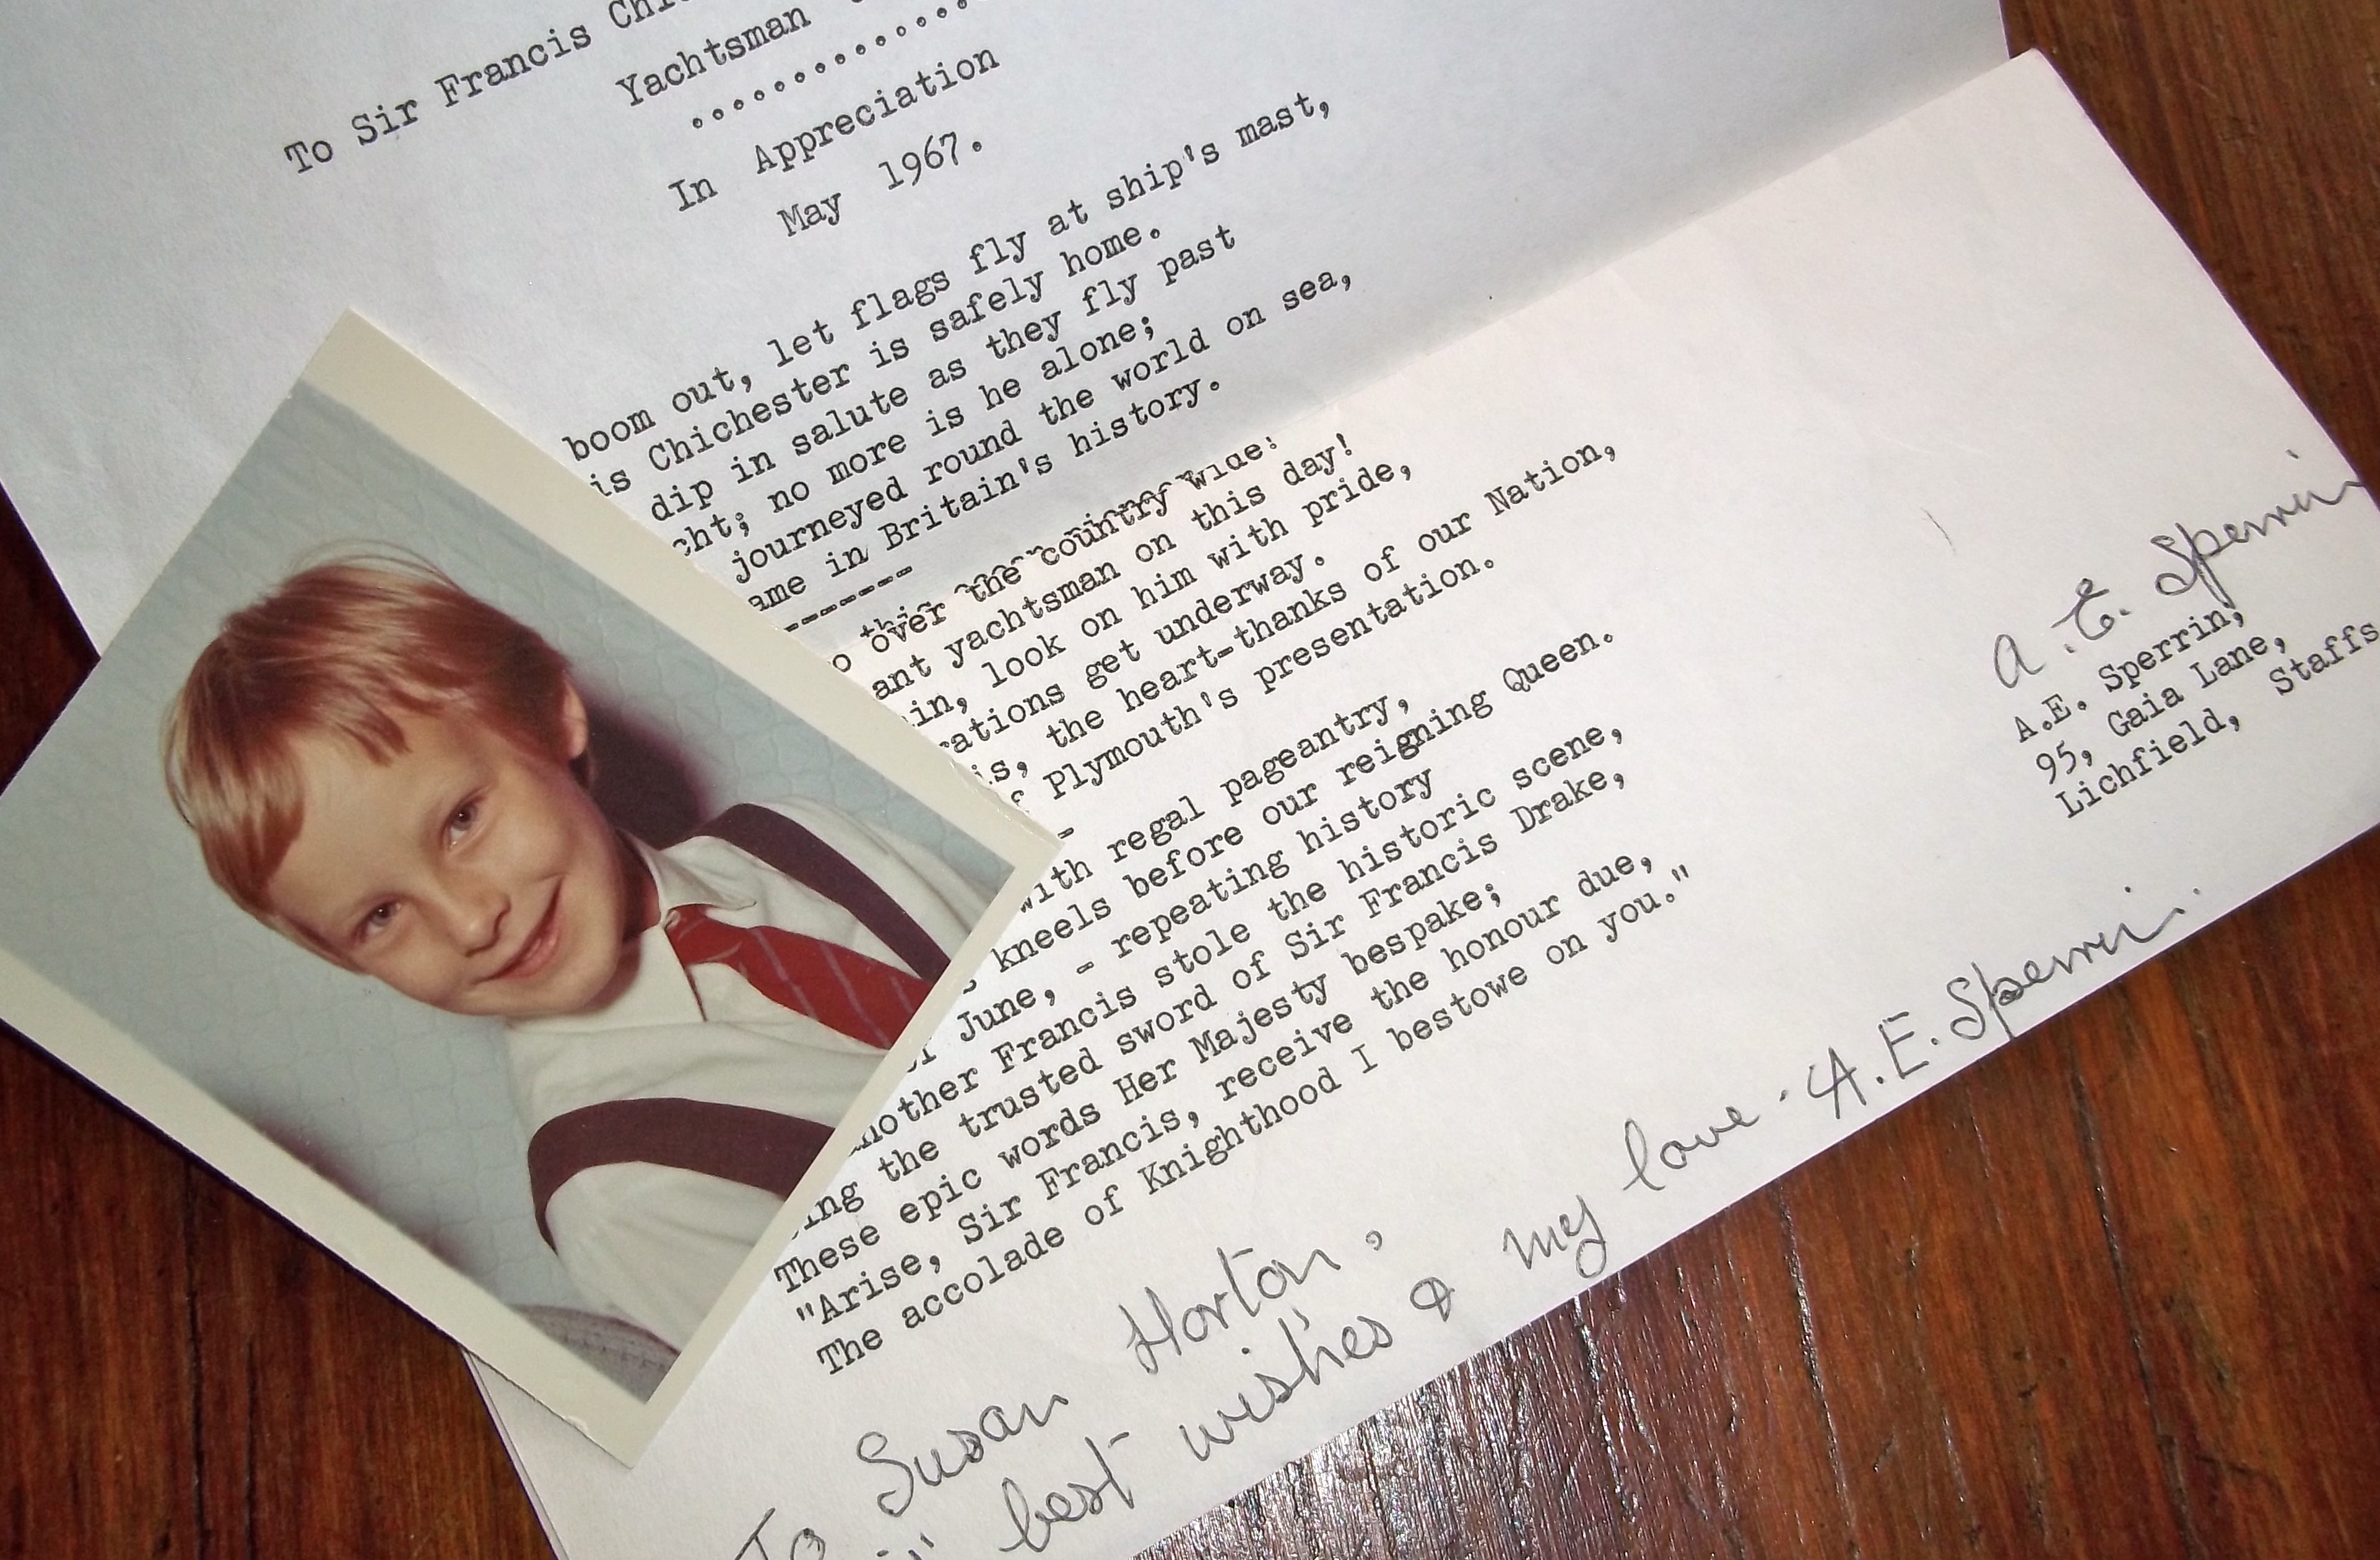 To Sir Francis
Yachtsman
...................
In Appreciation
May 1967.
boom out, let flags fly at ship's mast,
is Chichester is safely home.
dip in salute as they fly past
cht; no more is he alone;
journeyed round the world on sea,
ame in Britain's history.
-------
o over the country wide!
ant yachtsman on this day!
in, look on him with pride,
rations get underway.
is, the heart-thanks of our Nation,
f Plymouth's presentation.
-
with regal pageantry,
kneels before our reigning Queen.
of June, - repeating history
nother Francis stole the historic scene,
ing the trusted sword of Sir Francis Drake,
These epic words Her Majesty bespake;
"Arise, Sir Francis, receive the honour due,
The accolade of Knighthood I bestowe on you."
A.E. Sperrin
A.E. Sperrin,
95, Gaia Lane,
Lichfield, Staffs
To Susan Horton,
best wishes & my love. A.E. Sperrin.